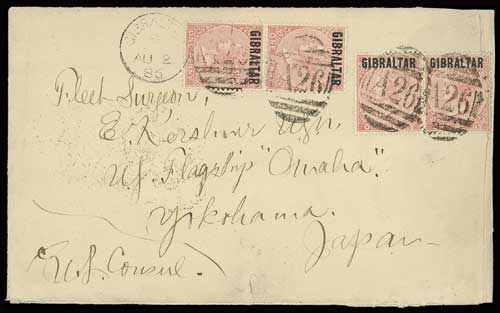 GIBRALTAR
AU 2
86
GIBRALTAR
GIBRALTAR
A26
GIBRALTAR
GIBRALTAR
A26
A26
Fleet Surgeon,
E. Kershner USN.
US. Flagship "Omaha".
Yokohama.
Japan
U.S. Consul.